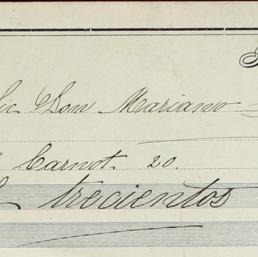 Lic Don Mariano
Carnot 20.
trecientos